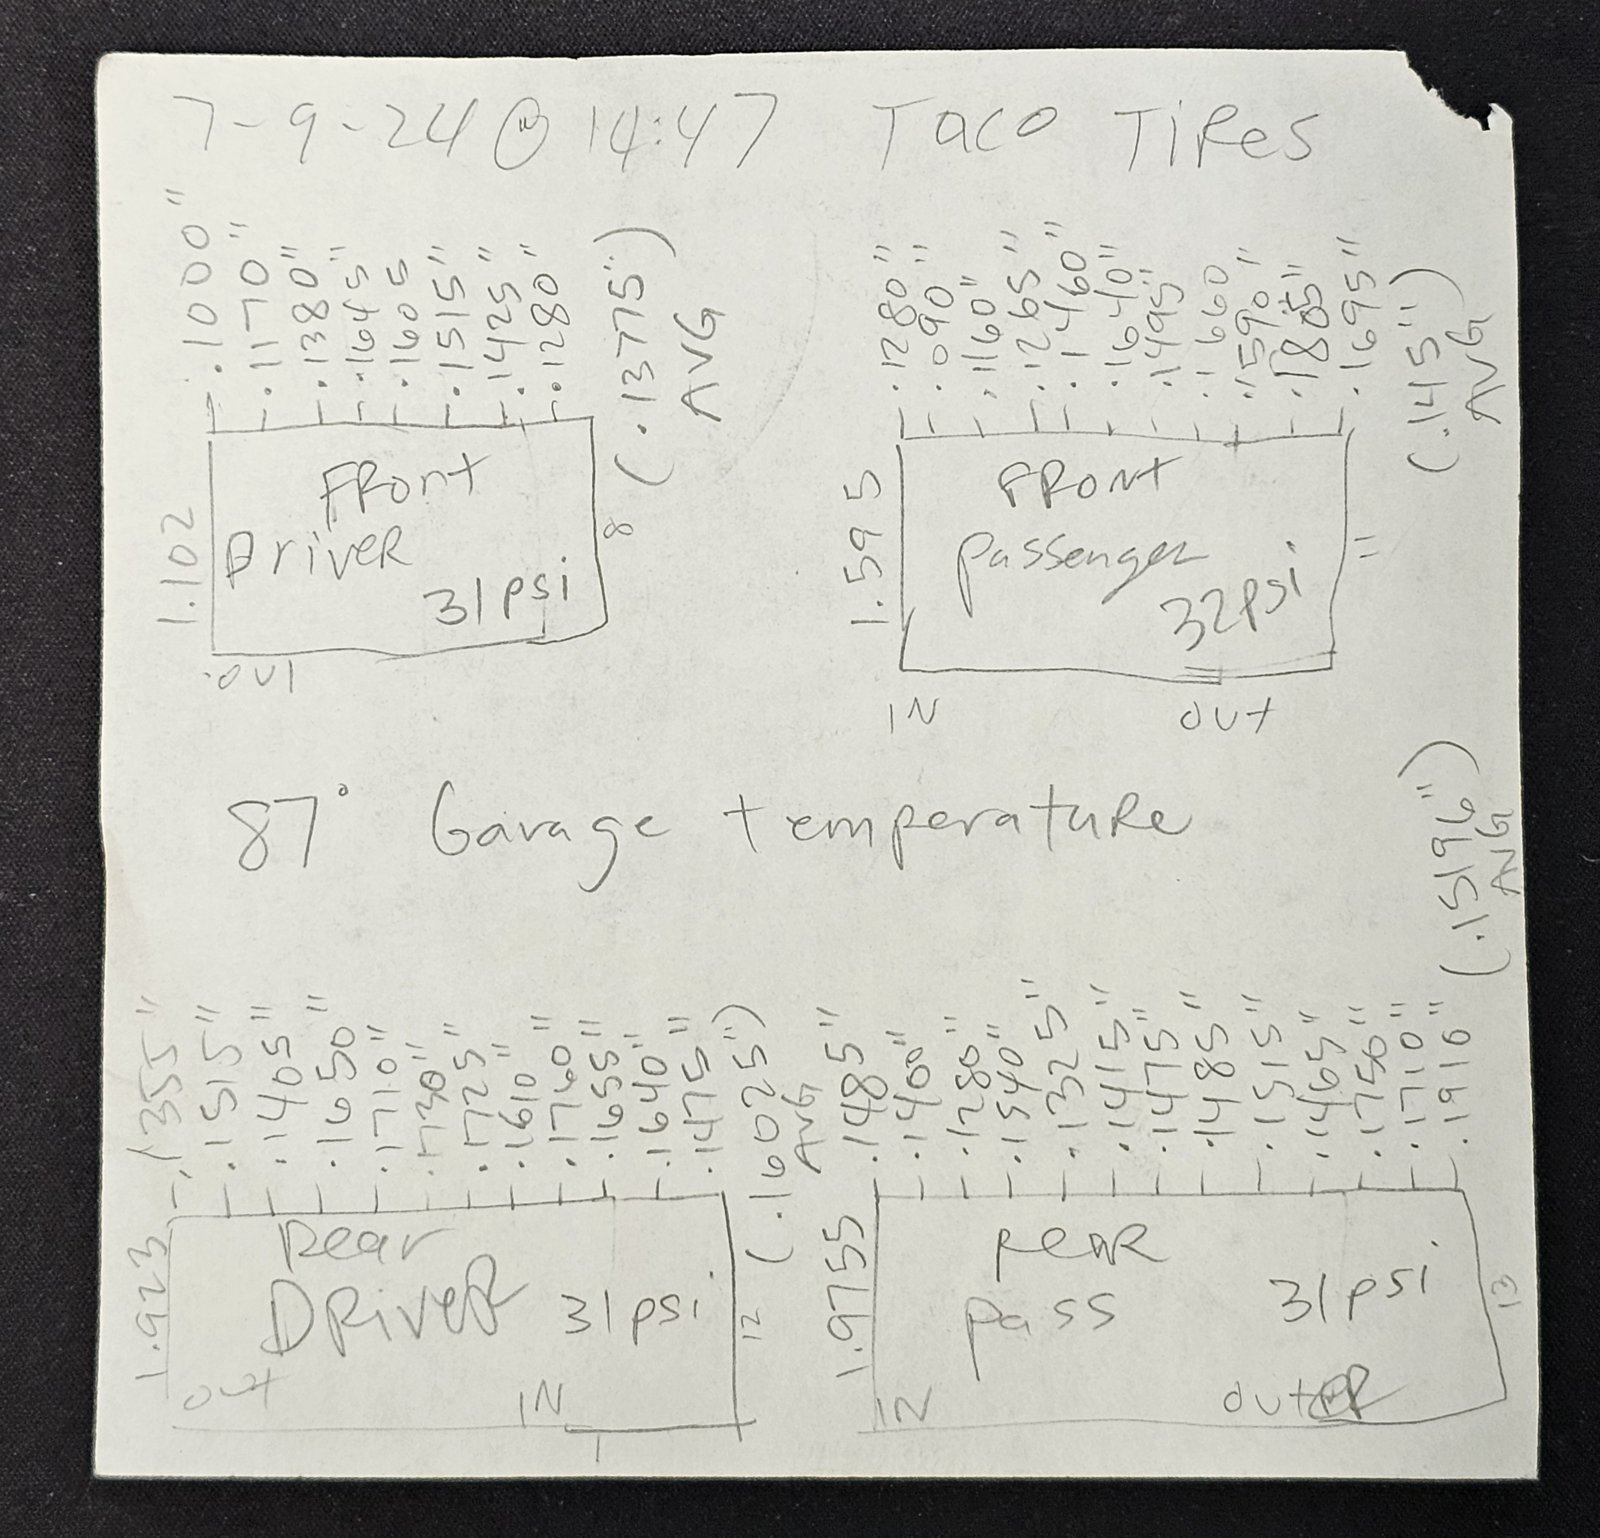 7-9-24 @ 14:47 Taco Tires
.1000"
.1170"
.1380"
.1645"
.1605
.1515"
.1425"
.1280"
(.1375")
AVG
1.102
Front
Driver
31psi
8
out
.1280"
.090"
.1160"
.1265"
.1460"
.1640"
.1495"
.1660
.1590"
.1695"
(.145")
AVG
1.595
Front
passenger
32psi.
11
IN
out
87° Garage temperature
.1355"
.1515"
.1405"
.1650"
.1710"
.1730"
.1725"
.1610"
.1760"
.1655"
.1640"
.1475"
(.16025")
AVG
1.923
Rear
DRiver
31psi.
12
out
IN
.1485"
.1400"
.1280"
.1540"
.1325"
.1415"
.1475"
.1485"
.1515"
.1465"
.1750"
.1710"
.1910"
(.15196")
AVG
1.9755
Rear
pass
31psi.
13
IN
out